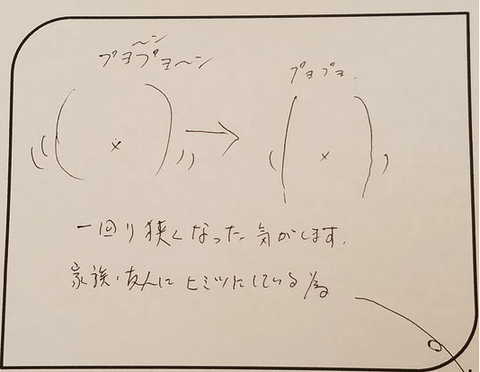 〜ン
ブヨブヨ〜ン
ブヨブヨ.
一回り狭くなった気がします.
家族・友人にヒミツにしている為